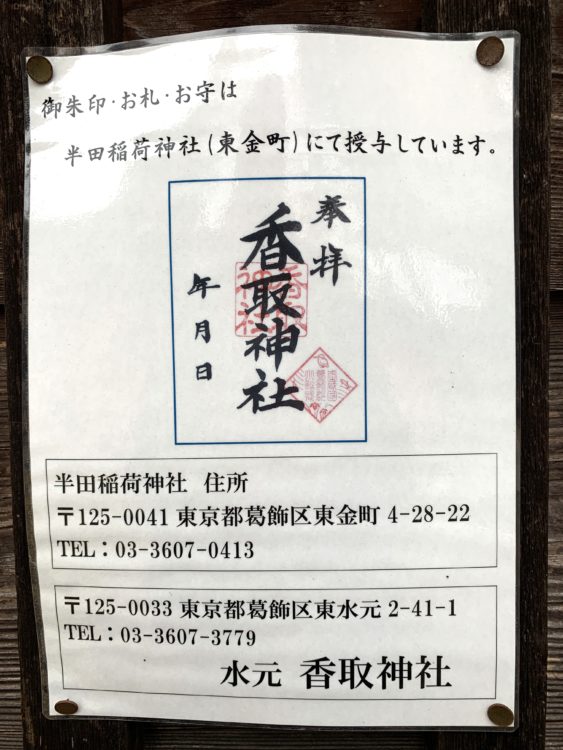 御朱印・お札・お守は
半田稲荷神社(東金町)にて授与しています。
奉拝
香取神社
年月日
香取神社
半田稲荷神社 住所
〒125-0041 東京都葛飾区東金町 4-28-22
TEL：03-3607-0413
〒125-0033 東京都葛飾区東水元 2-41-1
TEL：03-3607-3779
水元 香取神社